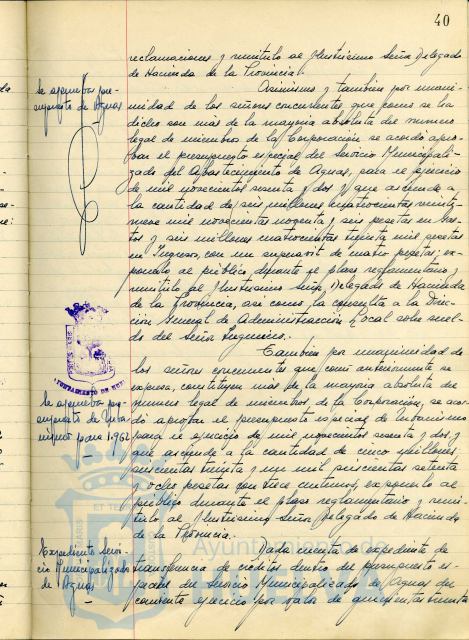 40
reclamaciones y remítalo al Ilustrísimo Señor Delegado
de Hacienda de la Provincia.
Se aprueba pre-
supuesto de Aguas
Asimismo y también por unani-
midad de los señores concurrentes, que como se ha
dicho son más de la mayoría absoluta del número
legal de miembros de la Corporación se acordó apro-
bar el presupuesto especial del Servicio Municipali-
zado del Abastecimiento de Aguas, para el ejercicio
de mil novecientos sesenta y dos y que asciende a
la cantidad de seis millones cuatrocientas veinti-
nueve mil novecientas noventa y seis pesetas en Gas-
tos y seis millones cuatrocientas treinta mil pesetas
en Ingresos, con un superavit de cuatro pesetas; ex-
póngalo al público, durante el plazo reglamentario,
remítalo al Ilustrísimo Señor Delegado de Hacienda
de la Provincia, así como, la consulta a la Direc-
ción General de Administración Local sobre suel-
do del Señor Ingeniero.
Se aprueba pre-
supuesto de Urba-
nismo para 1.962
También por unanimidad de
los señores concurrentes que, como anteriormente se
expresa, constituyen más de la mayoría absoluta del
número legal de miembros de la Corporación, se acor-
dó aprobar el presupuesto especial de Urbanismo
para el ejercicio de mil novecientos sesenta y dos, y
que asciende a la cantidad de cinco millones,
seiscientas treinta y un mil seiscientas setenta
y ocho pesetas con trece céntimos, exponerlo al
público durante el plazo reglamentario y remi-
tirlo al Ilustrísimo Señor Delegado de Hacienda
de la Provincia.
Expediente Servi-
cio Municipalizado
de Aguas
Dada cuenta de expediente de
transferencia de créditos dentro del presupuesto es-
pecial del Servicio Municipalizado de Aguas del
corriente ejercicio por valor de quinientas treinta
Ayuntamiento de
HUELVA